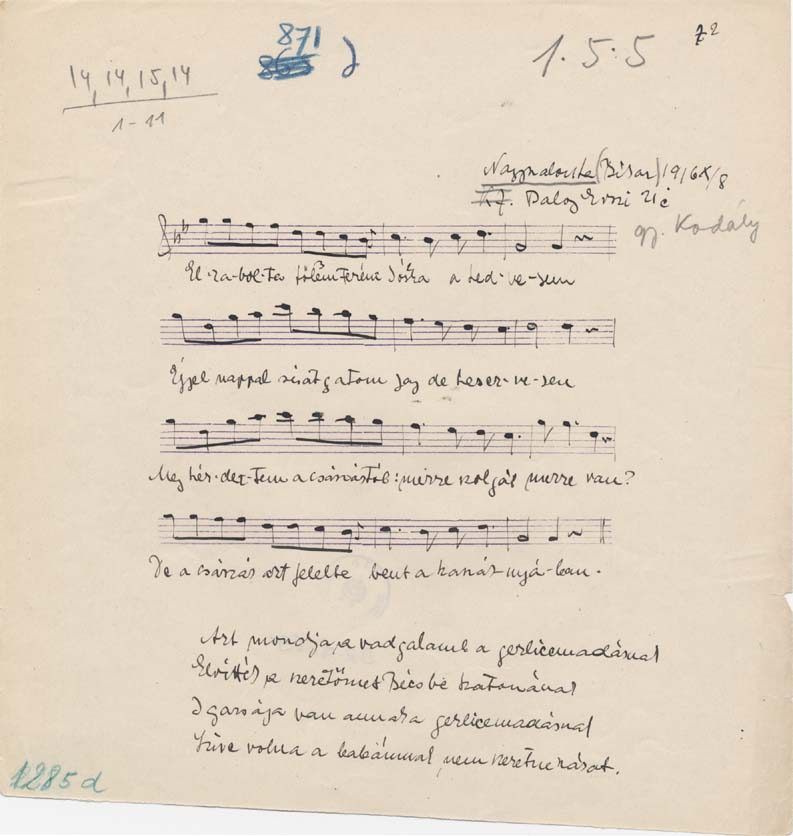 871
J
1.5.5
72
14, 14, 15, 14
1-11
Nagyszalonta (Bihar) 916 X/8
Balog Erzsi 21 é
gy. Kodály
El-ra-bol-ta tőlem Ferenc Jóska a ked-ve-sem
Éjjel nappal siratgatom jaj de keser-ve-sen
Meg kér-dez-tem a császártól: merre szolgál merre van?
De a császár azt felelte bent a kaszár-nyá-ban.
Azt mondja a vadgalamb a gerlicemadárnak
Elvitték a szeretőmet Bécsbe katonának
Igazsága van annak a gerlicemadárnak
Híve volna a babámnak, nem szeretne mást.
1285 d